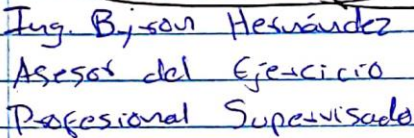 Ing. Byron Hernández
Asesor del Ejercicio
Profesional Supervisado